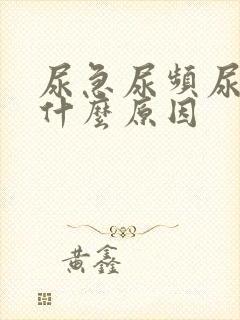 尿急尿頻尿
什麼原因
黃鑫